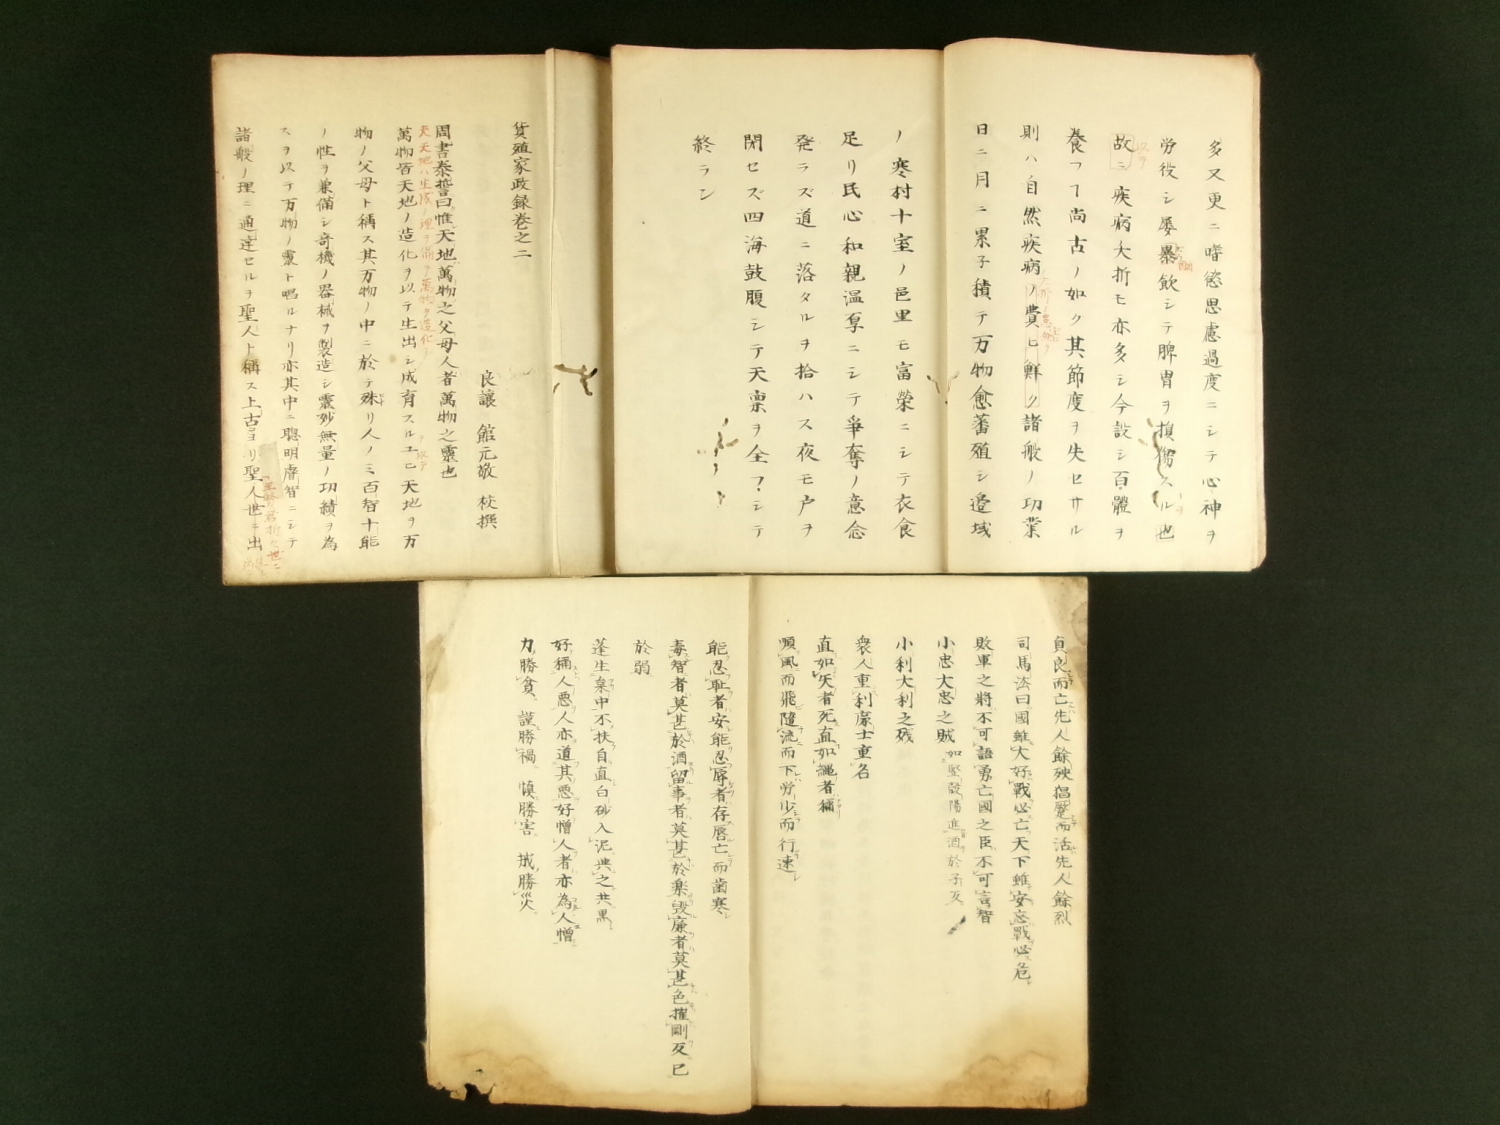 貨殖家政録巻之二
良譲 館元敬 校撰
周書泰誓曰惟天地萬物之父母人者萬物之靈也
萬物皆天地ノ造化ヲ以テ生出シ成育スルエヒ天地ヲ万
物ノ父母ト稱ス其万物ノ中ニ於テ殊リ人ノミ百智十能
ノ性ヲ兼備シ奇機ノ器械ヲ製造シ靈妙無量ノ功績ヲ為
スヲ以テ万物ノ靈ト唱ルナリ亦其中ニ聰明睿智ニシテ
諸般ノ理ニ通達セルヲ聖人ト稱ス上古ヨリ聖人世ニ出
多又更ニ嗜慾思慮過度ニシテ心神ヲ
労役シ屡暴飲シテ脾胃ヲ損傷スル也
故ニ疾病大折モ亦多シ今設シ百體ヲ
養フコト尚古ノ如ク其節度ヲ失セサル
則ハ自然疾病ノ費ヒ鮮ク諸般ノ功業
日ニ月ニ累子積テ万物愈蕃殖シ邉域
ノ寒村十室ノ邑里モ富榮ニシテ衣食
足リ民心和親温厚ニシテ爭奪ノ意念
発ラズ道ニ落タルヲ拾ハス夜モ户ヲ
閉セズ四海鼓腹シテ天稟ヲ全フシテ
終ラン
貞良而亡先人餘殃猖蹷而活先人餘烈
司馬法曰國雖大好戰必亡天下雖安忘戰必危
敗軍之將不可語勇亡國之臣不可言智
小忠大忠之賊 如竪穀陽進酒於子反
小利大利之残
衆人重利廉士重名
直如矢者死直如繩者稱
順風而飛隨流而下労少而行速
能忍耻者安能忍辱者存唇亡而齒寒
毒智者莫甚於酒留事者莫甚於楽毀廉者莫甚色摧剛反已
於弱
蓬生枲中不扶自直白砂入泥與之共黒
好稱人悪人亦道其悪好憎人者亦為人憎
力勝貧 謹勝禍 慎勝害 戒勝災